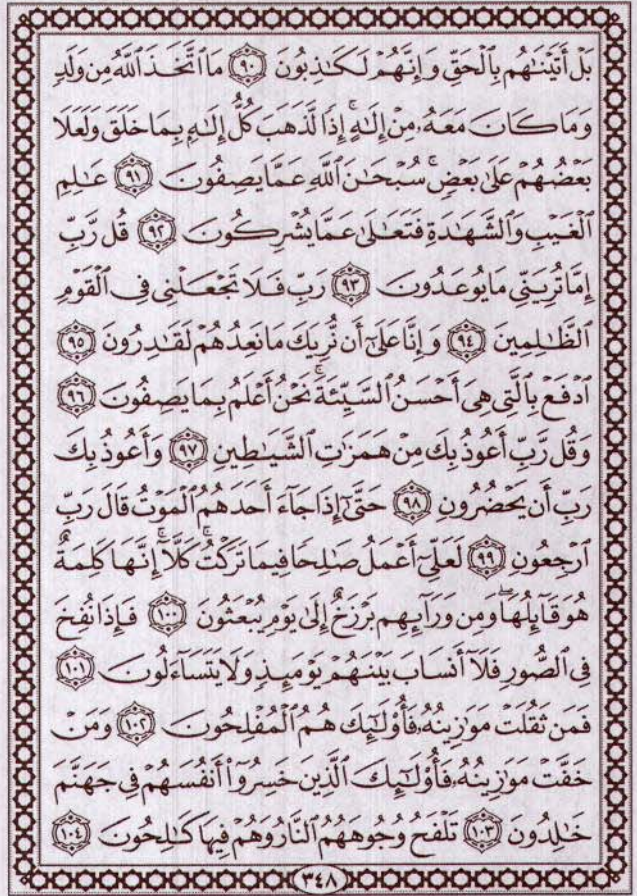 بَلْ أَتَيْنَٰهُم بِٱلْحَقِّ وَإِنَّهُمْ لَكَٰذِبُونَ ۝٩٠ مَا ٱتَّخَذَ ٱللَّهُ مِن وَلَدٍ
وَمَا كَانَ مَعَهُۥ مِنْ إِلَٰهٍ ۚ إِذًا لَّذَهَبَ كُلُّ إِلَٰهٍۭ بِمَا خَلَقَ وَلَعَلَا
بَعْضُهُمْ عَلَىٰ بَعْضٍ ۚ سُبْحَٰنَ ٱللَّهِ عَمَّا يَصِفُونَ ۝٩١ عَٰلِمِ
ٱلْغَيْبِ وَٱلشَّهَٰدَةِ فَتَعَٰلَىٰ عَمَّا يُشْرِكُونَ ۝٩٢ قُل رَّبِّ
إِمَّا تُرِيَنِّى مَا يُوعَدُونَ ۝٩٣ رَبِّ فَلَا تَجْعَلْنِى فِى ٱلْقَوْمِ
ٱلظَّٰلِمِينَ ۝٩٤ وَإِنَّا عَلَىٰٓ أَن نُّرِيَكَ مَا نَعِدُهُمْ لَقَٰدِرُونَ ۝٩٥
ٱدْفَعْ بِٱلَّتِى هِىَ أَحْسَنُ ٱلسَّيِّئَةَ ۚ نَحْنُ أَعْلَمُ بِمَا يَصِفُونَ ۝٩٦
وَقُل رَّبِّ أَعُوذُ بِكَ مِنْ هَمَزَٰتِ ٱلشَّيَٰطِينِ ۝٩٧ وَأَعُوذُ بِكَ
رَبِّ أَن يَحْضُرُونِ ۝٩٨ حَتَّىٰٓ إِذَا جَآءَ أَحَدَهُمُ ٱلْمَوْتُ قَالَ رَبِّ
ٱرْجِعُونِ ۝٩٩ لَعَلِّىٓ أَعْمَلُ صَٰلِحًا فِيمَا تَرَكْتُ ۚ كَلَّآ ۚ إِنَّهَا كَلِمَةٌ
هُوَ قَآئِلُهَا ۖ وَمِن وَرَآئِهِم بَرْزَخٌ إِلَىٰ يَوْمِ يُبْعَثُونَ ۝١٠٠ فَإِذَا نُفِخَ
فِى ٱلصُّورِ فَلَآ أَنسَابَ بَيْنَهُمْ يَوْمَئِذٍ وَلَا يَتَسَآءَلُونَ ۝١٠١
فَمَن ثَقُلَتْ مَوَٰزِينُهُۥ فَأُو۟لَٰٓئِكَ هُمُ ٱلْمُفْلِحُونَ ۝١٠٢ وَمَنْ
خَفَّتْ مَوَٰزِينُهُۥ فَأُو۟لَٰٓئِكَ ٱلَّذِينَ خَسِرُوٓا۟ أَنفُسَهُمْ فِى جَهَنَّمَ
خَٰلِدُونَ ۝١٠٣ تَلْفَحُ وُجُوهَهُمُ ٱلنَّارُ وَهُمْ فِيهَا كَٰلِحُونَ ۝١٠٤
٣٤٨